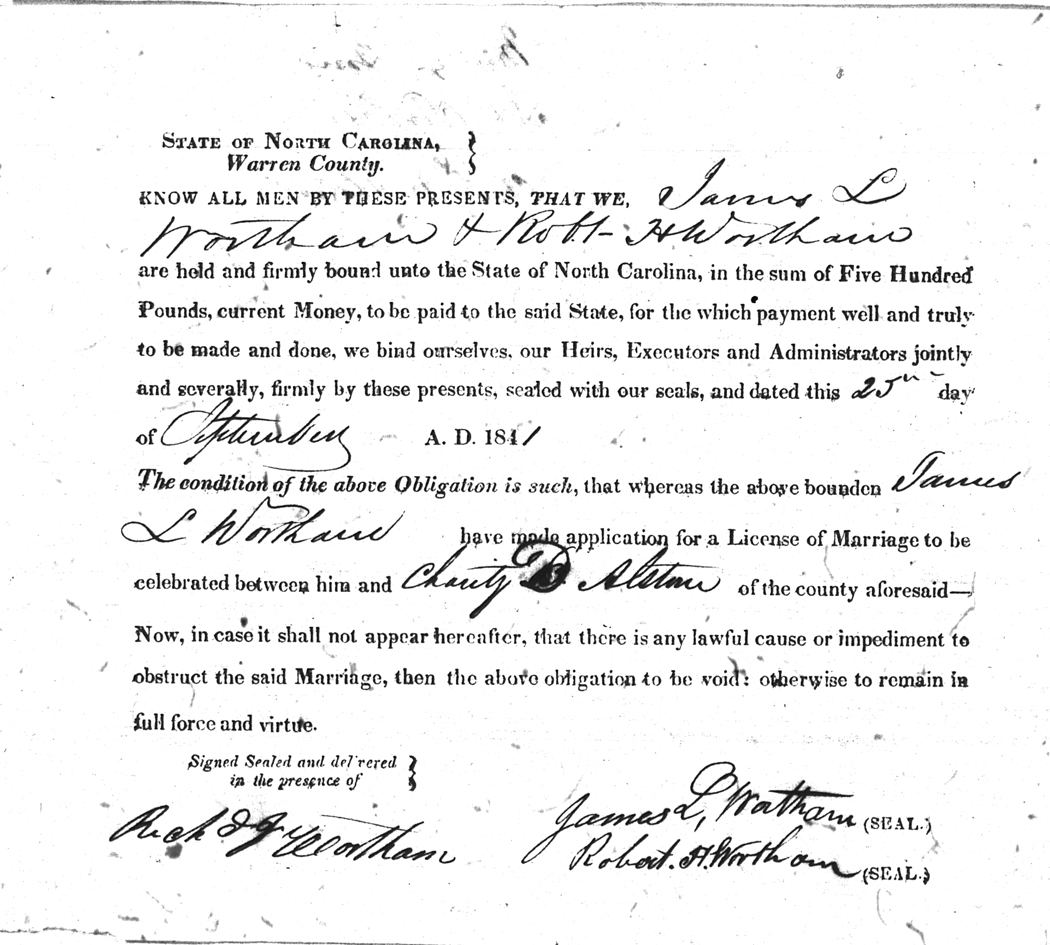 STATE OF NORTH CAROLINA,
Warren County.
KNOW ALL MEN BY THESE PRESENTS, THAT WE, James L
Wortham & Robt H Wortham
are held and firmly bound unto the State of North Carolina, in the sum of Five Hundred
Pounds, current Money, to be paid to the said State, for the which payment well and truly
to be made and done, we bind ourselves, our Heirs, Executors and Administrators jointly
and severally, firmly by these presents, sealed with our seals, and dated this 25th day
of September A. D. 1841
The condition of the above Obligation is such, that whereas the above bounden James
L Wortham have made application for a License of Marriage to be
celebrated between him and Charity B Alston of the county aforesaid—
Now, in case it shall not appear hereafter, that there is any lawful cause or impediment to
obstruct the said Marriage, then the above obligation to be void: otherwise to remain in
full force and virtue.
Signed Sealed and delivered
in the presence of
James L, Wortham (SEAL.)
Rich Wortham
Robert. H. Wortham (SEAL.)